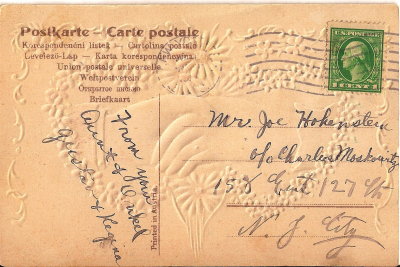 Postkarte - Carte postale
Korespondenční lístek — Cartolina postale
Levelező-Lap — Karta korespondencyjna
Union postale universelle
Weltpostverein
Открытое письмо
Briefkaart
U.S. POSTAGE
Mr. Joe Hohenstein
c/o Charles Moskowitz
158 East 127 St
N. Y. City
From your
Aunt & Onkel
Regina
Printed in Austria.